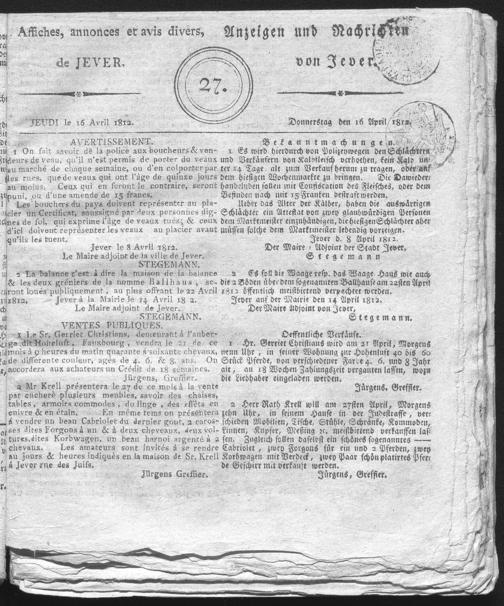 Affiches, annonces et avis divers,
de JEVER.
Anzeigen und Nachrichten
von Jever.
27.
JEUDI le 16 Avril 1812.
AVERTISSEMENT.
1 On fait savoir de la police aux bouchers & ven-
deurs de veau, qu'il n'est permis de porter du veaux
au marché de cinque semaine, ou d'en colporter par
les rues, que de veaux qui ont l'âge de quinze jours
au moins. Ceux qui en feront le contraire, seront
puni, ou d'une amende de 15 francs.
Les bouchers du pays doivent représenter au pla-
cier un Certificat, aussigné par deux personnes dig-
nes de foi, qui exprime l'âge de veaux tués, & ceux
d'ici doivent représenter les veaux au placier avant
qu'ils les tuent.
Jever le 8 Avril 1812.
Le Maire adjoint de la ville de Jever.
STEGEMANN.
2 La balance c'est à dire la maison de la balance
& les deux gréniers de la nomme Ballhaus, se-
ront loués publiquement, au plus offrant le 22 Avril
1812. Jever à la Mairie le 14 Avril 18 2.
Le Maire adjoint de Jever.
STEGEMANN.
VENTES PUBLIQUES.
1 Le Sr. Gerriet Christians, demeurant à l'auber-
ge dit Hohelust, Fauxbourg, vendra le 21 de ce
mois à 9 heures du matin quarante à soixante chevaux,
de différente couleur, ages de 4. 6. & 8. ans. On
accordera aux achateurs un Crédit de 18 semaines.
Jürgens, Greffier.
2 Mr Krell présentera le 27 de ce mois à la vente
par enchère plusieurs meubles, savoir des chaises,
tables, armoirs commodes, du linge, des effêts en
cuivre & en étain. En même tems on présentera
à vendre un beau Cabriolet du dernier gout, 2 caros-
ses dites Forgons à 2 chevaux, deux voi-
tures dites Korbwagen, un beau harnoi argenté à 2
chevaux. Les amateurs sont invités à se rendre
au jours & heures indiqués en la maison de Sr. Krell
à Jever rue des Juifs.
Jürgens Greffier.
Donnerstag den 16 April 1812.
Bekanntmachungen.
1 Es wird hierdurch von Polizeywegen den Schlächtern
und Verkäufern von Kalbfleisch verbothen, kein Kalb un-
ter 14 Tage alt zum Verkauf herum zu tragen, oder auf
dem hiesigen Wochenmarkte zu bringen. Die Dawieder-
handelnden sollen mit Confiscation des Fleisches, oder dem
Befinden nach mit 15 Franken bestraft werden.
Ueber das Alter der Kälber, haben die auswärtigen
Schlächter ein Attestat von zwey glaubwürdigen Personen
dem Marktmeister einzuhändigen, die hiesigen Schlächter aber
müssen solche dem Marktmeister lebendig vorzeigen.
Jever d. 8 April 1812.
Der Maire Adjoint der Stadt Jever,
Stegemann
2 Es soll die Waage resp. das Waage Haus wie auch
die 2 Böden über dem sogenannten Ballhause am 22 April
1812 öffentlich meistbietend verpachtet werden.
Jever auf der Mairie den 14 April 1812.
Der Maire Adjoint von Jever,
Stegemann.
Oeffentliche Verkäufe.
1 Hr. Gerriet Christians wird am 21 April, Morgens
neun Uhr, in seiner Wohnung zur Hohenlust 40 bis 60
Stück Pferde, von verschiedener Farbe 4. 6. und 8 Jahr
alt, an 18 Wochen Zahlungszeit vergauten lassen, wozu
die Liebhaber eingeladen werden.
Jürgens, Greffier.
2 Herr Rath Krell will am 27sten April, Morgens
zehn Uhr, in seinem Hause in der Judenstraße, ver-
schieden Mobilien, Tische, Stühle, Schränke, Kommoden,
Linnen, Kupfer, Messing &c. meistbietend verkaufen las-
sen. Zugleich sollen daselbst ein schönes sogenanntes
Cabriolet, zwey Forgons für ein und 2 Pferden, zwey
Korbwagen mit Verdeck, zwey Paar schön platirtes Pfer-
de Geschirr mit verkauft werden.
Jürgens, Greffier.